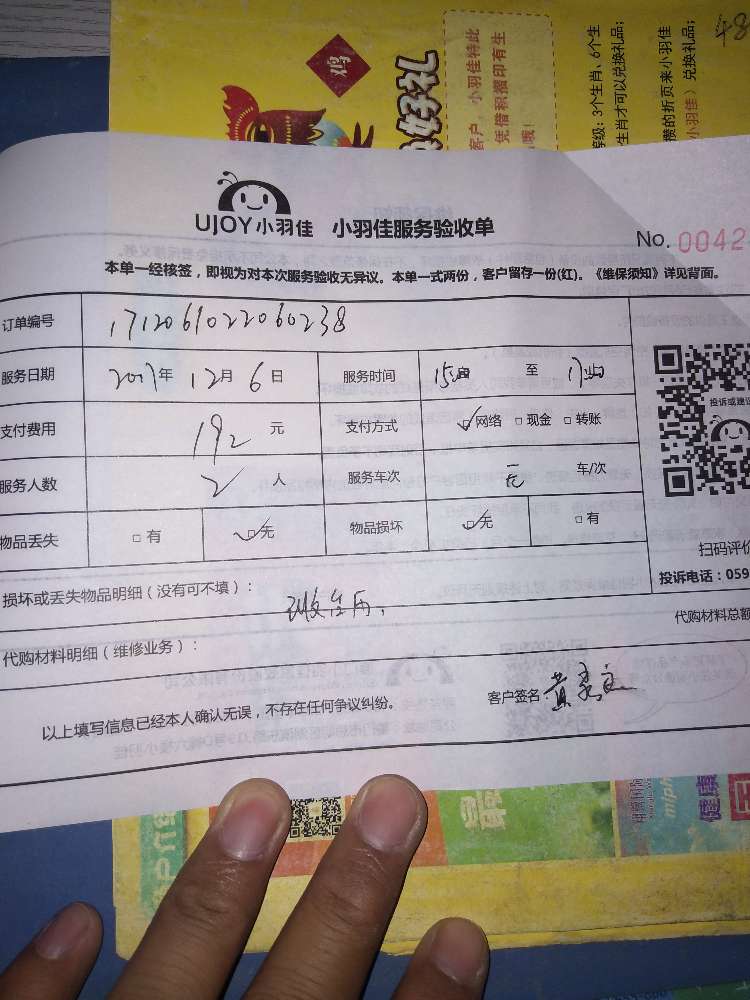 鸡
好礼
客户，小羽佳特此
凭借积攒印有生
等级：3个生肖、6个生
生肖才可以兑换礼品；
攒的折页来小羽佳
小羽佳）兑换礼品；
48
UJOY小羽佳 小羽佳服务验收单
No. 0042
本单一经核签，即视为对本次服务验收无异议。本单一式两份，客户留存一份(红)。《维保须知》详见背面。
订单编号 1712061022060238
服务日期 2017年 12月 6日 服务时间 15 至 17
投诉或建议
支付费用 192 元 支付方式 网络 现金 转账
服务人数 2 人 服务车次 无 车/次
物品丢失 有 无 物品损坏 无 有
扫码评价
损坏或丢失物品明细（没有可不填）：
投诉电话：059
代购材料明细（维修业务）：
代购材料总额
以上填写信息已经本人确认无误，不存在任何争议纠纷。
客户签名
健康